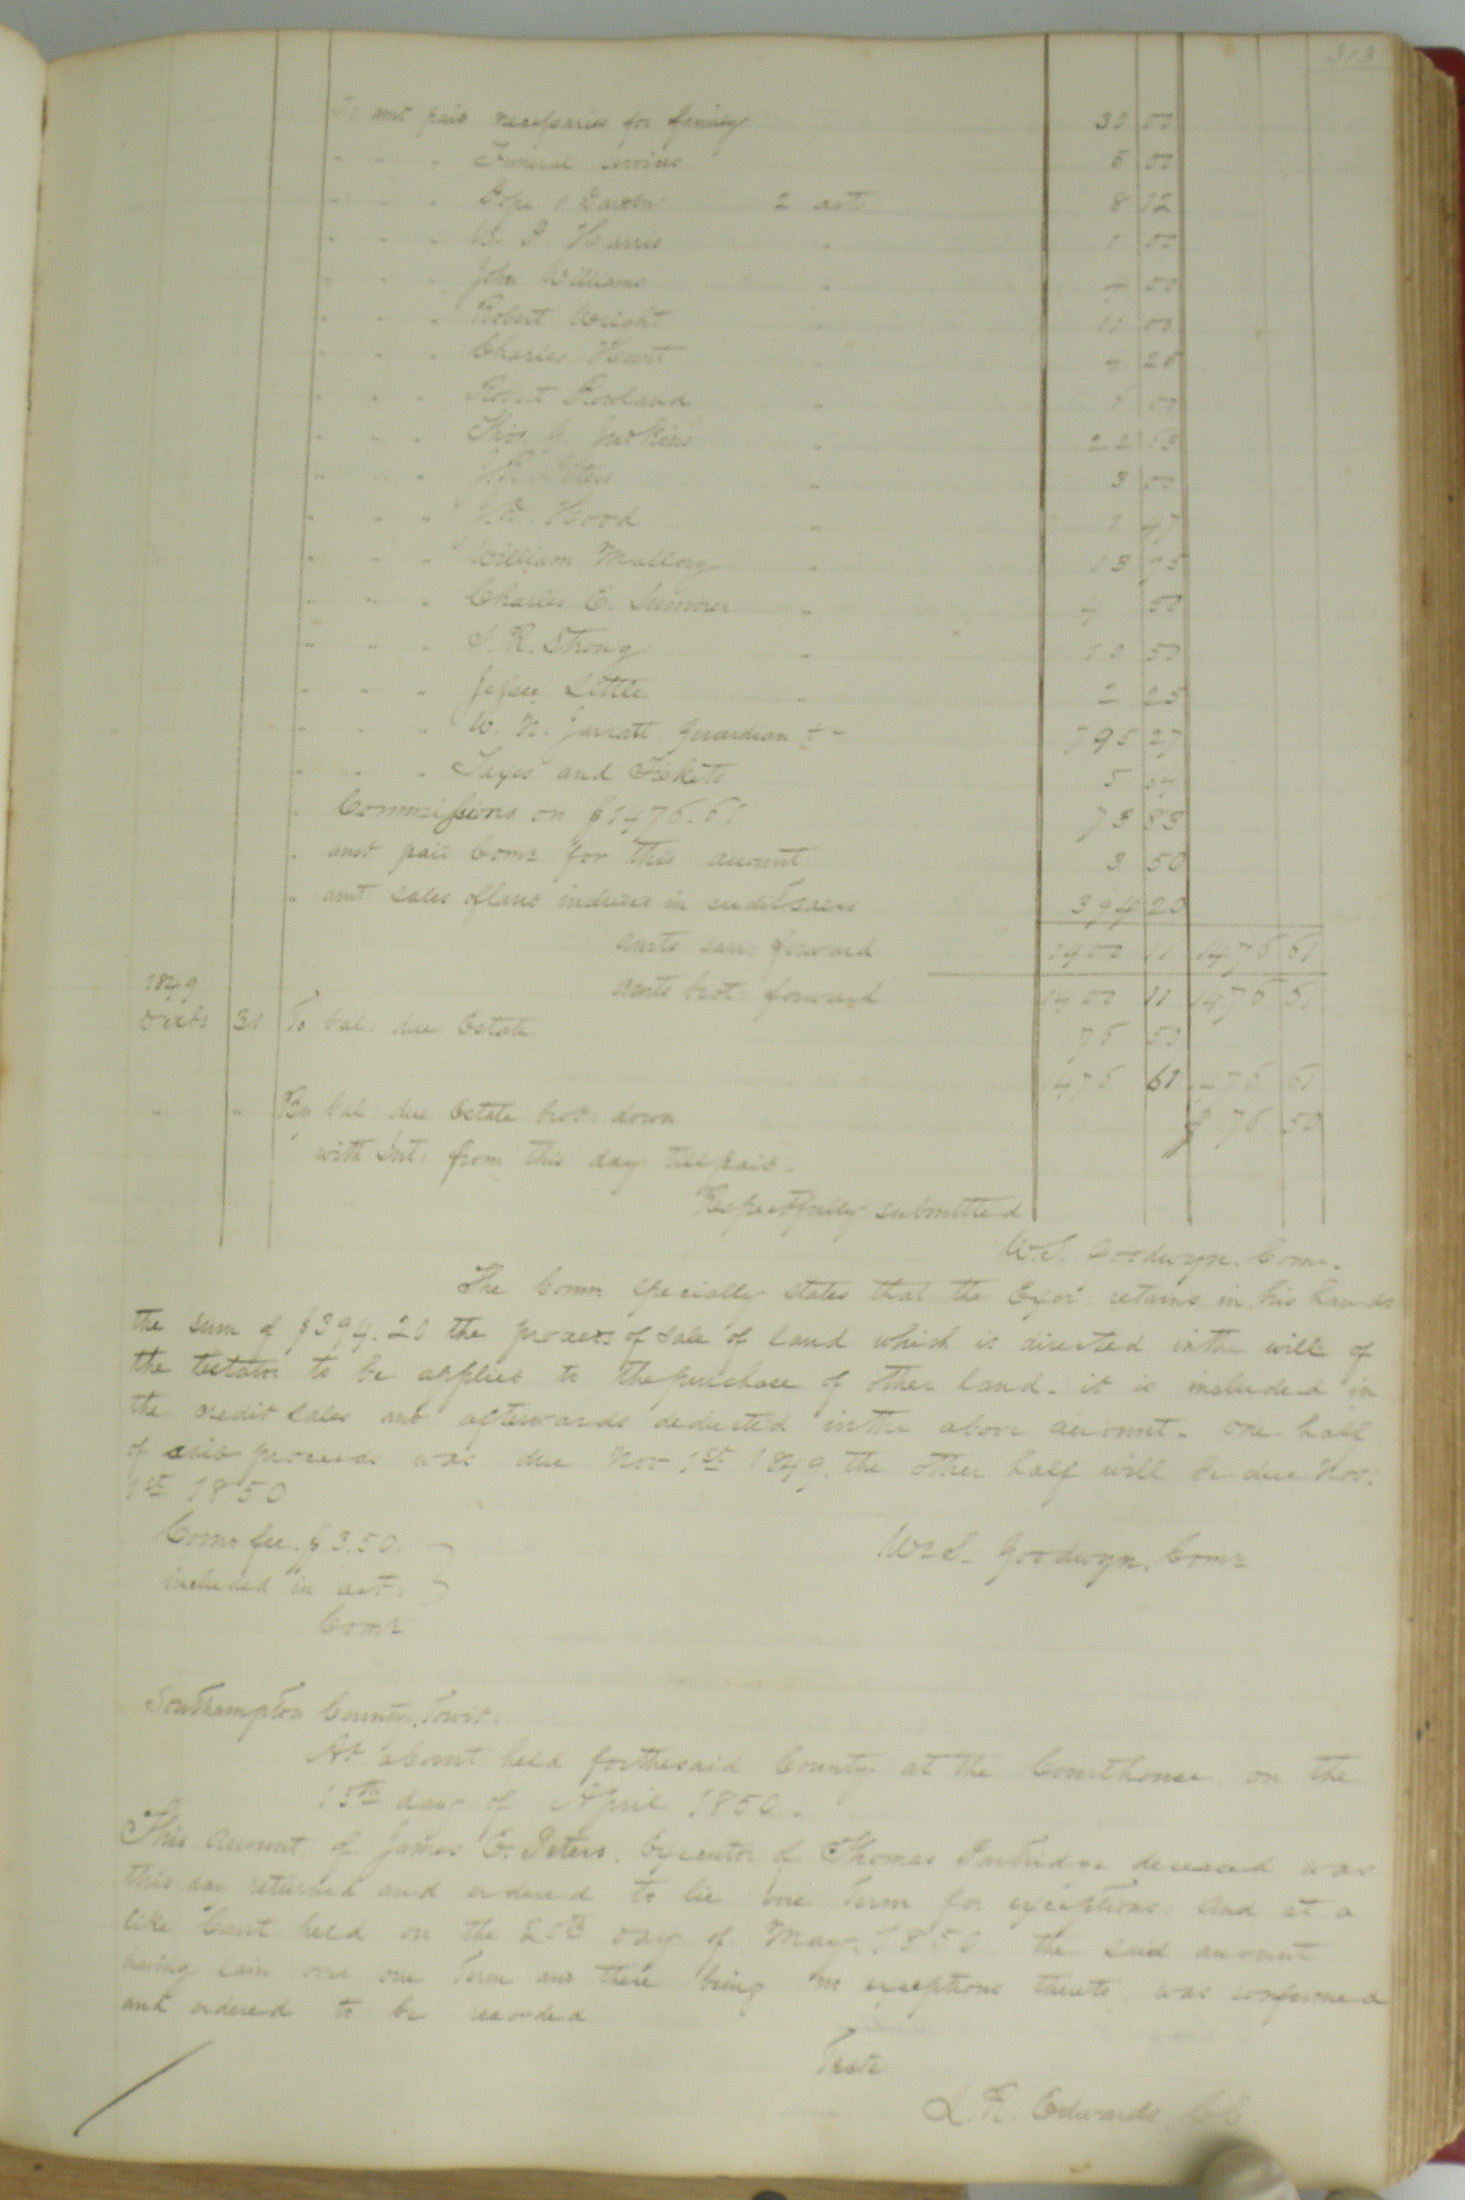 313
To amt paid necessaries for family 30 00
" " " Funeral services 5 00
" " " Pope & Darden 2 acts 8 12
" " " W. P. Harris " 1 00
" " " John Williams " 4 00
" " " Robert Wright " 11 00
" " " Charles Hurt 4 25
" " " Robert Rowland " 00
" " " Thos. J. Judkins " 22 63
" " " Peters " 3 00
" " " Hood " 1 47
" " " William Mallory " 13 75
" " " Charles E. " 4 50
" " " S. R. Strong " 10 50
" " " Jesse Little " 2 25
" " " W. N. Jarratt, guardian &c 795 27
" " " Taxes and Tickets 5 54
" Commissions on $1476.61 73 83
" amt paid Comr for this account 3 50
" amt sales of land included in credit sales 394 20
amts car. forward 1400 11 1476 61
amts brot. forward 1400 11 1476 61
1849
Decbr 31 To bal. due Estate 76 50
1476 61 1476 61
" " By bal. due Estate brot. down $ 76 50
with Int. from this day till paid.
Respectfully submitted
W. S. Goodwyn. Comr.
The Comr specially states that the Exor. retains in his hands
the sum of $394.20 the proceeds of sale of land which is directed in the will of
the testator to be applied to the purchase of other land. it is included in
the credit sales and afterwards deducted in the above account. one half
of said proceeds was due Nov 1st 1849, the other half will be due Nov.
1st 1850
Comr fee. $3.50.
included in act.
Comr
Wm S. Goodwyn. Comr
Southampton County, Towit.
At a Court held for the said County at the Courthouse on the
15th day of April 1850.
This Account of James E. Peters, Executor of Thomas Partridge deceased was
this day returned and ordered to lie one Term for exceptions. And at a
like Court held on the 20th day of May 1850. the said account
having lain over one Term and there being no exceptions thereto was confirmed
and ordered to be recorded
Teste
L. R. Edwards CC